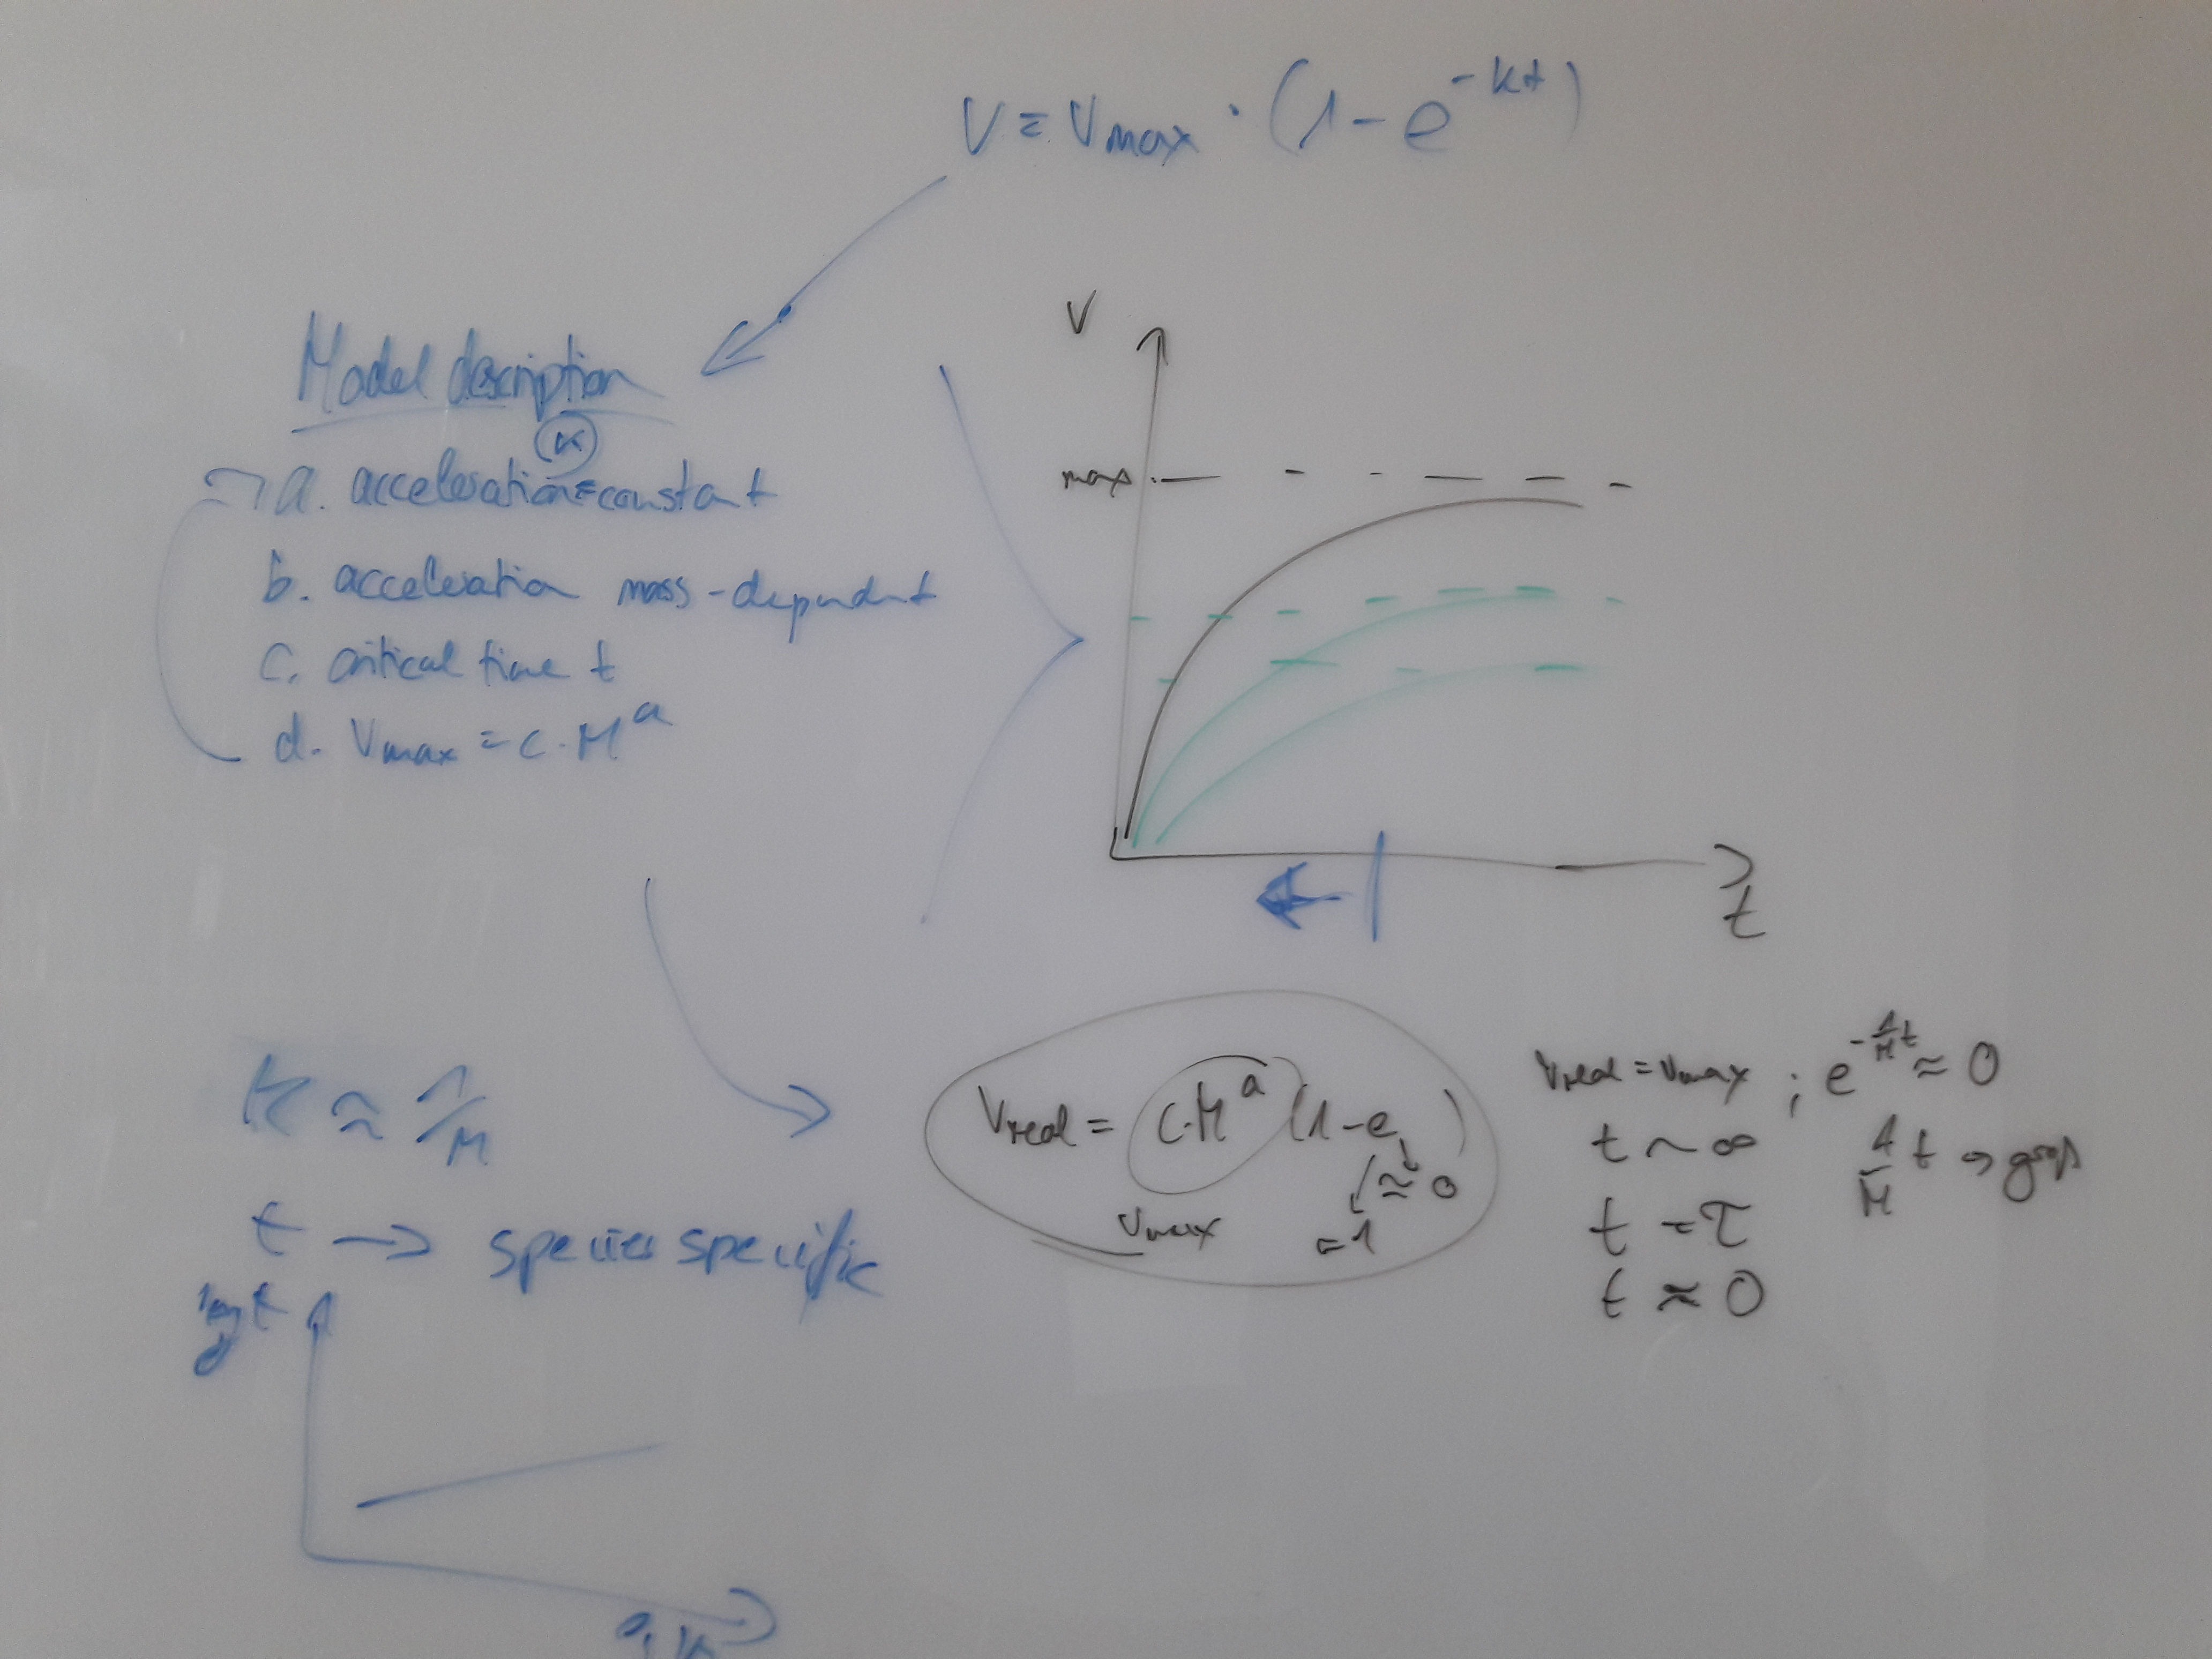 V = Vmax · (1 - e^-kt)
Model description
k
a. acceleration = constant
b. acceleration mass-dependent
c. critical time t
d. Vmax = c · M^a
V
max
t
k ≈ 1/M
t → species specific
log t
Vreal = c·M^a (1-e
≈ 0
= 1
Vmax
Vreal = Vmax ; e^-1/M t ≈ 0
t ~ ∞
1/M t → groß
t = τ
t ≈ 0